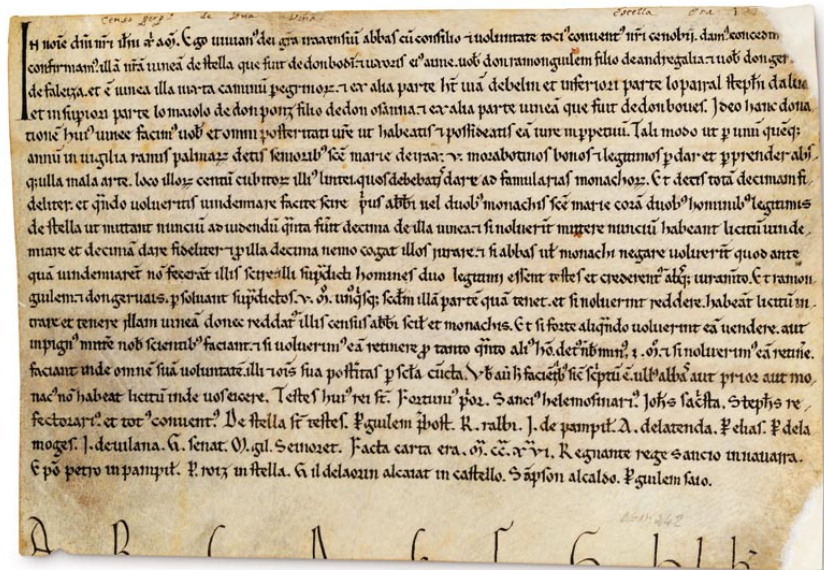 Censo perp. de una viña Estella
In noie dni nri ihu xpi am. Ego vivian dei gra iraxensiu abbas cu consilio et voluntate toci convent nri cenobij. dam concedim
confirmam illa nra vinea de stella que fuit de don bodi et uxoris ei aune. vob don ramon guilem filio de andregalia et vob don ger
de faleza. et e vinea illa iuxta caminu pegrinor. et ex alia parte ht via de belin et inferiori parte lo parral stephi
et in supiori parte lo maiolo de don ponz filio de don osanna et ex alia parte vinea que fuit de don boves. Ideo hanc dona
tione hui vinee facim vob et omni posteritati vre ut habeatis et possideatis ea iure in ppetuu. Tali modo ut p unu queq
annu in vigilia ramis palmar detis seniorib sce marie de iraz v. morabotinos bonos et legitimos p dar et p prender abs
q ulla mala arte. loco illor centu cubitor illi lintei quos debebatis dare ad famularias monachor. Et detis tota decimam fi
deliter. et qndo volueritis vindemiare facite scire pus abbi vel duob monachis sce marie cora duob hominib legitimis
de stella ut mittant nunciu ad videndu qnta fuit decima de illa vinea et si noluerit mittere nunciu habeant licitu vinde
miare et decima dare fideliter et p illa decima nemo cogat illos iurare et si abbas vel monachi negare voluerit quod ante
qua vindemiaret no fecerat illis scire illi supdicti homines duo legitimi essent testes et crederent absq iuramto. Et ramon
guilem et don gervais. psolvant supdictos v. m. unqsq scdm illa parte qua tenet. et si noluerint reddere. habeat licitu in
trare et tenere illam vinea donec reddat illis censu abbi scil et monachis. Et si forte aliqndo voluerint ea vendere. aut
inpign mittre nob scientib faciant et si voluerim ea retinere p tanto qnto ali ho. det nb min. i. m. et si noluerim ea retine.
faciant inde omne sua voluntate illi et ois sua postitas p scla cucta. Vb au h facieb sic septu e. ull abba aut prior aut mo
nac no habeat licitu inde vos eicere. Testes hui rei st. Fortuni por. Sanci helemosinari. Johs sacsta. Stephs re
fectorari. et tot convent. De stella st testes. P guilem post. R. ralbi. J. de pampil. A. de latenda. P elias. P de la
moges. J. de vilana. G. senat. M. gil. Seinoret. Facta carta era. m. cc. xvi. Regnante rege sancio in navarra.
E po petro in pampil. P. roiz in stella. Gil de laorin alcaiat in castello. Sapson alcaldo. P guilem saio.